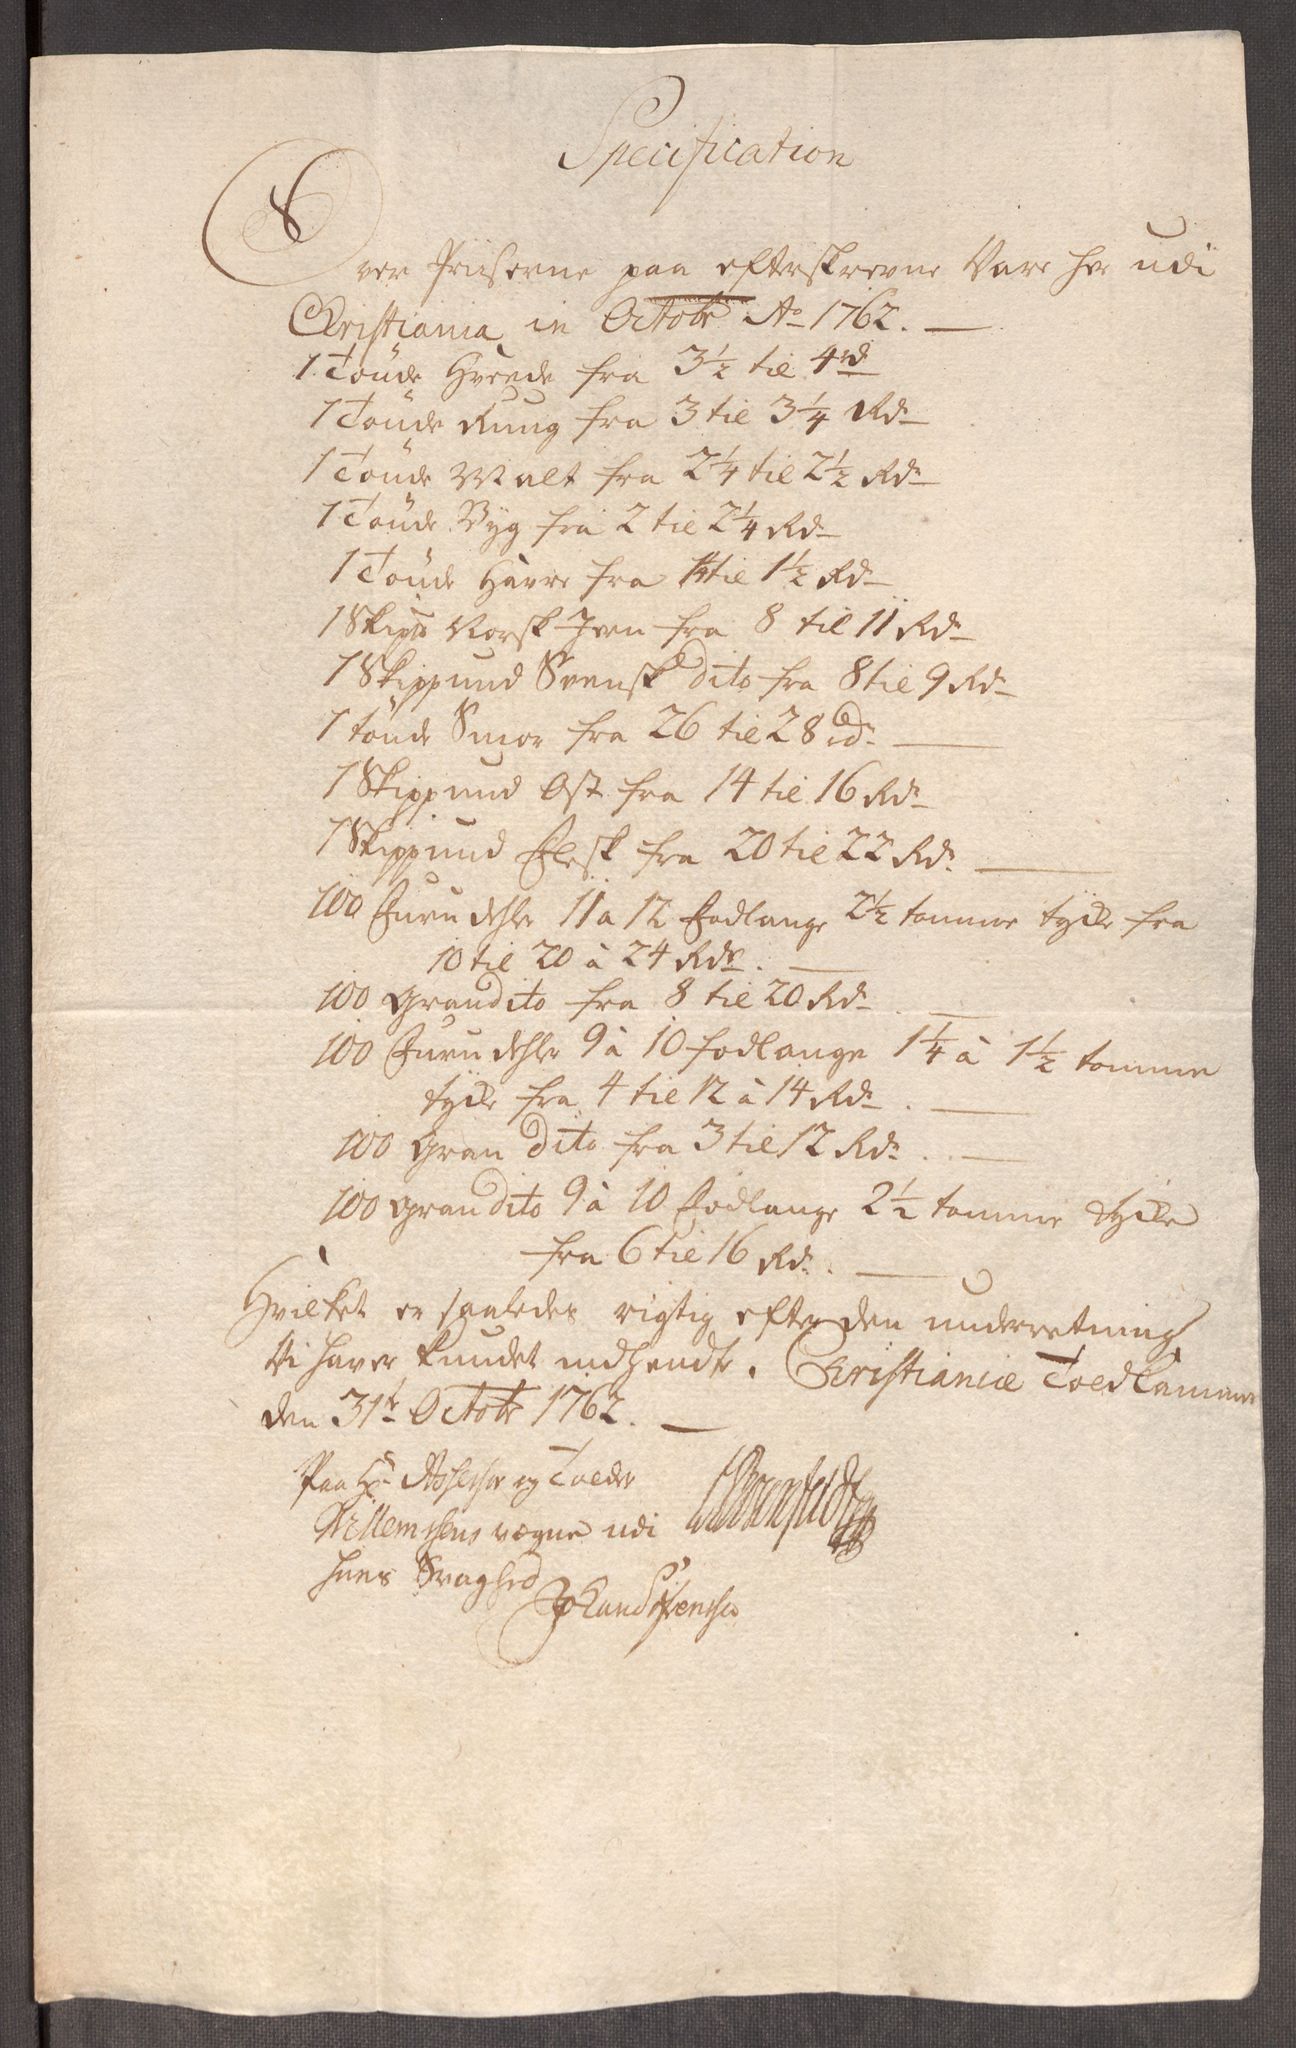 Specification
Over Priiserne paa efterskrevne Vare her udi
Christiania in Octobr Ao 1762.
1 Tönde Hvede fra 3½ til 4 rd
1 Tönde Rung fra 3 til 3¼ Rdr
1 Tönde Malt fra 2¼ til 2½ Rdr
1 Tönde Byg fra 2 til 2¼ Rdr
1 Tönde Havre fra til 1½ Rdr
1 Skipd Norsk Jern fra 8 til 11 Rdr
1 Skippund Svensk dito fra 8 til 9 Rdr
1 tönde Smör fra 26 til 28 rdr.
1 Skippund Ost fra 14 til 16 Rdr
1 Skippund Flesk fra 20 til 22 Rdr.
100 Furu dehler 11 a 12 Fodlange 2½ tomme tycke fra
10 til 20 à 24 Rdr.
100 Gran dito fra 8 til 20 Rdr.
100 Furu dehler 9 à 10 fodlange 1¼ à 1½ tomme
tycke fra 4 til 12 à 14 Rdr.
100 Gran dito fra 3 til 12 Rdr.
100 Gran dito 9 à 10 Fodlange 2½ tomme tycke
fra 6 til 16 Rdr.
Hvilket er saaledes rigtig efter den underretning
Vi haver kundet indhendte. Christianiæ Toldkammer
den 31te Octobr 1762.
Paa Hr Assessor og Tolder
Willemsens vegne udi
hans Svaghed